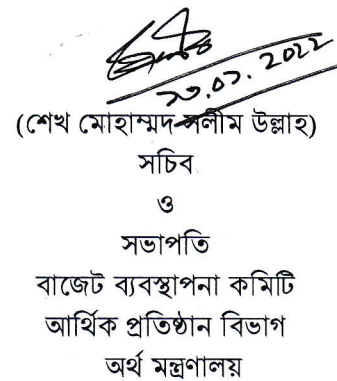 ২৩.০১.2022
(শেখ মোহাম্মদ সলীম উল্লাহ)
সচিব
ও
সভাপতি
বাজেট ব্যবস্থাপনা কমিটি
আর্থিক প্রতিষ্ঠান বিভাগ
অর্থ মন্ত্রণালয়